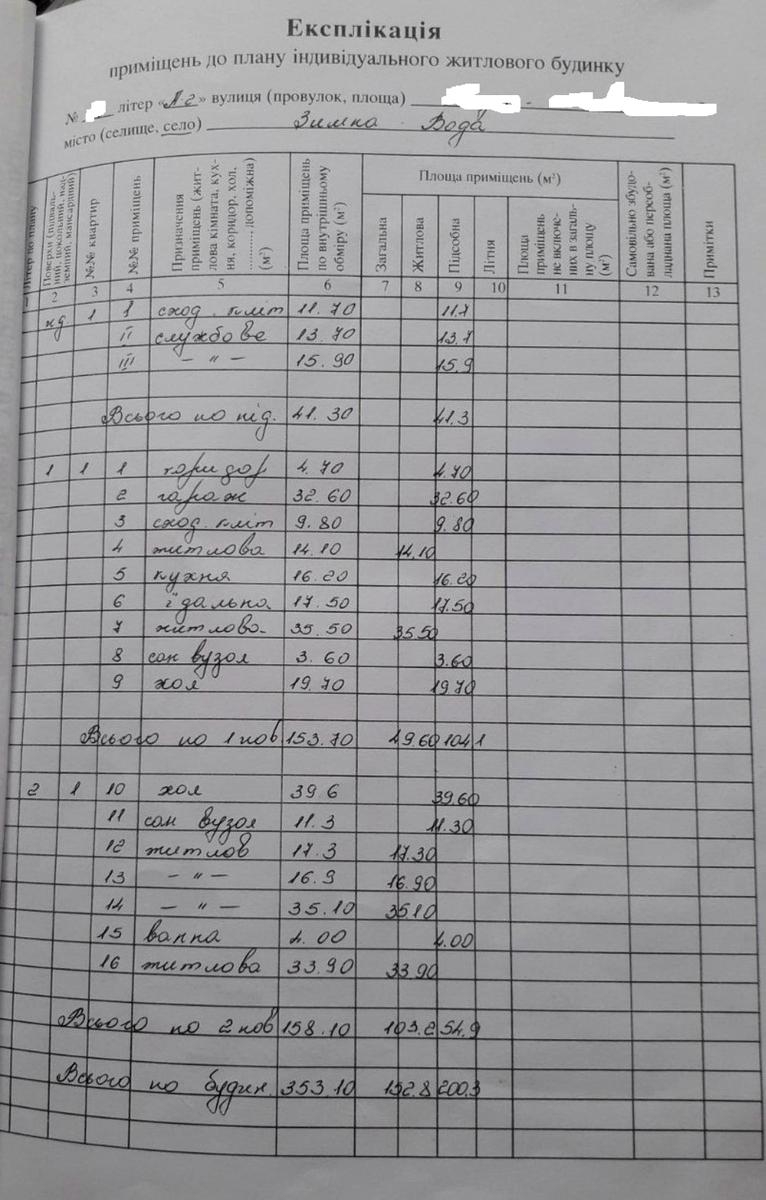 Експлікація
приміщень до плану індивідуального житлового будинку
№ літер «А-2» вулиця (провулок, площа)
місто (селище, село) Зимна Вода
Літер по плану
Поверхи (підвальний, цокольний, надземний, мансардний)
№№ квартир
№№ приміщень
Призначення приміщень (житлова кімната, кухня, коридор, хол, ............, допоміжна) (м²)
Площа приміщень по внутрішньому обміру (м²)
Площа приміщень (м²)
Загальна
Житлова
Підсобна
Літня
Площа приміщень не включених в загальну площу (м²)
Самовільно збудована або переобладнана площа (м²)
Примітки
2 3 4 5 6 7 8 9 10 11 12 13
нд. 1 I сход. кліт 11.70 11.7
II службове 13.70 13.7
III – " – 15.90 15.9
Всього по під. 41.30 41.3
1 1 1 коридор 4.70 4.70
2 гараж 32.60 32.60
3 сход. кліт 9.80 9.80
4 житлова 14.10 14.10
5 кухня 16.20 16.20
6 їдальна 17.50 17.50
7 житлова 35.50 35.50
8 сан вузол 3.60 3.60
9 хол 19.70 19.70
Всього по 1 пов 153.70 49.60 104.1
2 1 10 хол 39.6 39.60
11 сан вузол 11.3 11.30
12 житлов 17.3 17.30
13 – " – 16.9 16.90
14 – " – 35.10 35.10
15 ванна 4.00 4.00
16 житлова 33.90 33.90
Всього по 2 пов 158.10 103.2 54.9
Всього по будин. 353.10 152.8 200.3